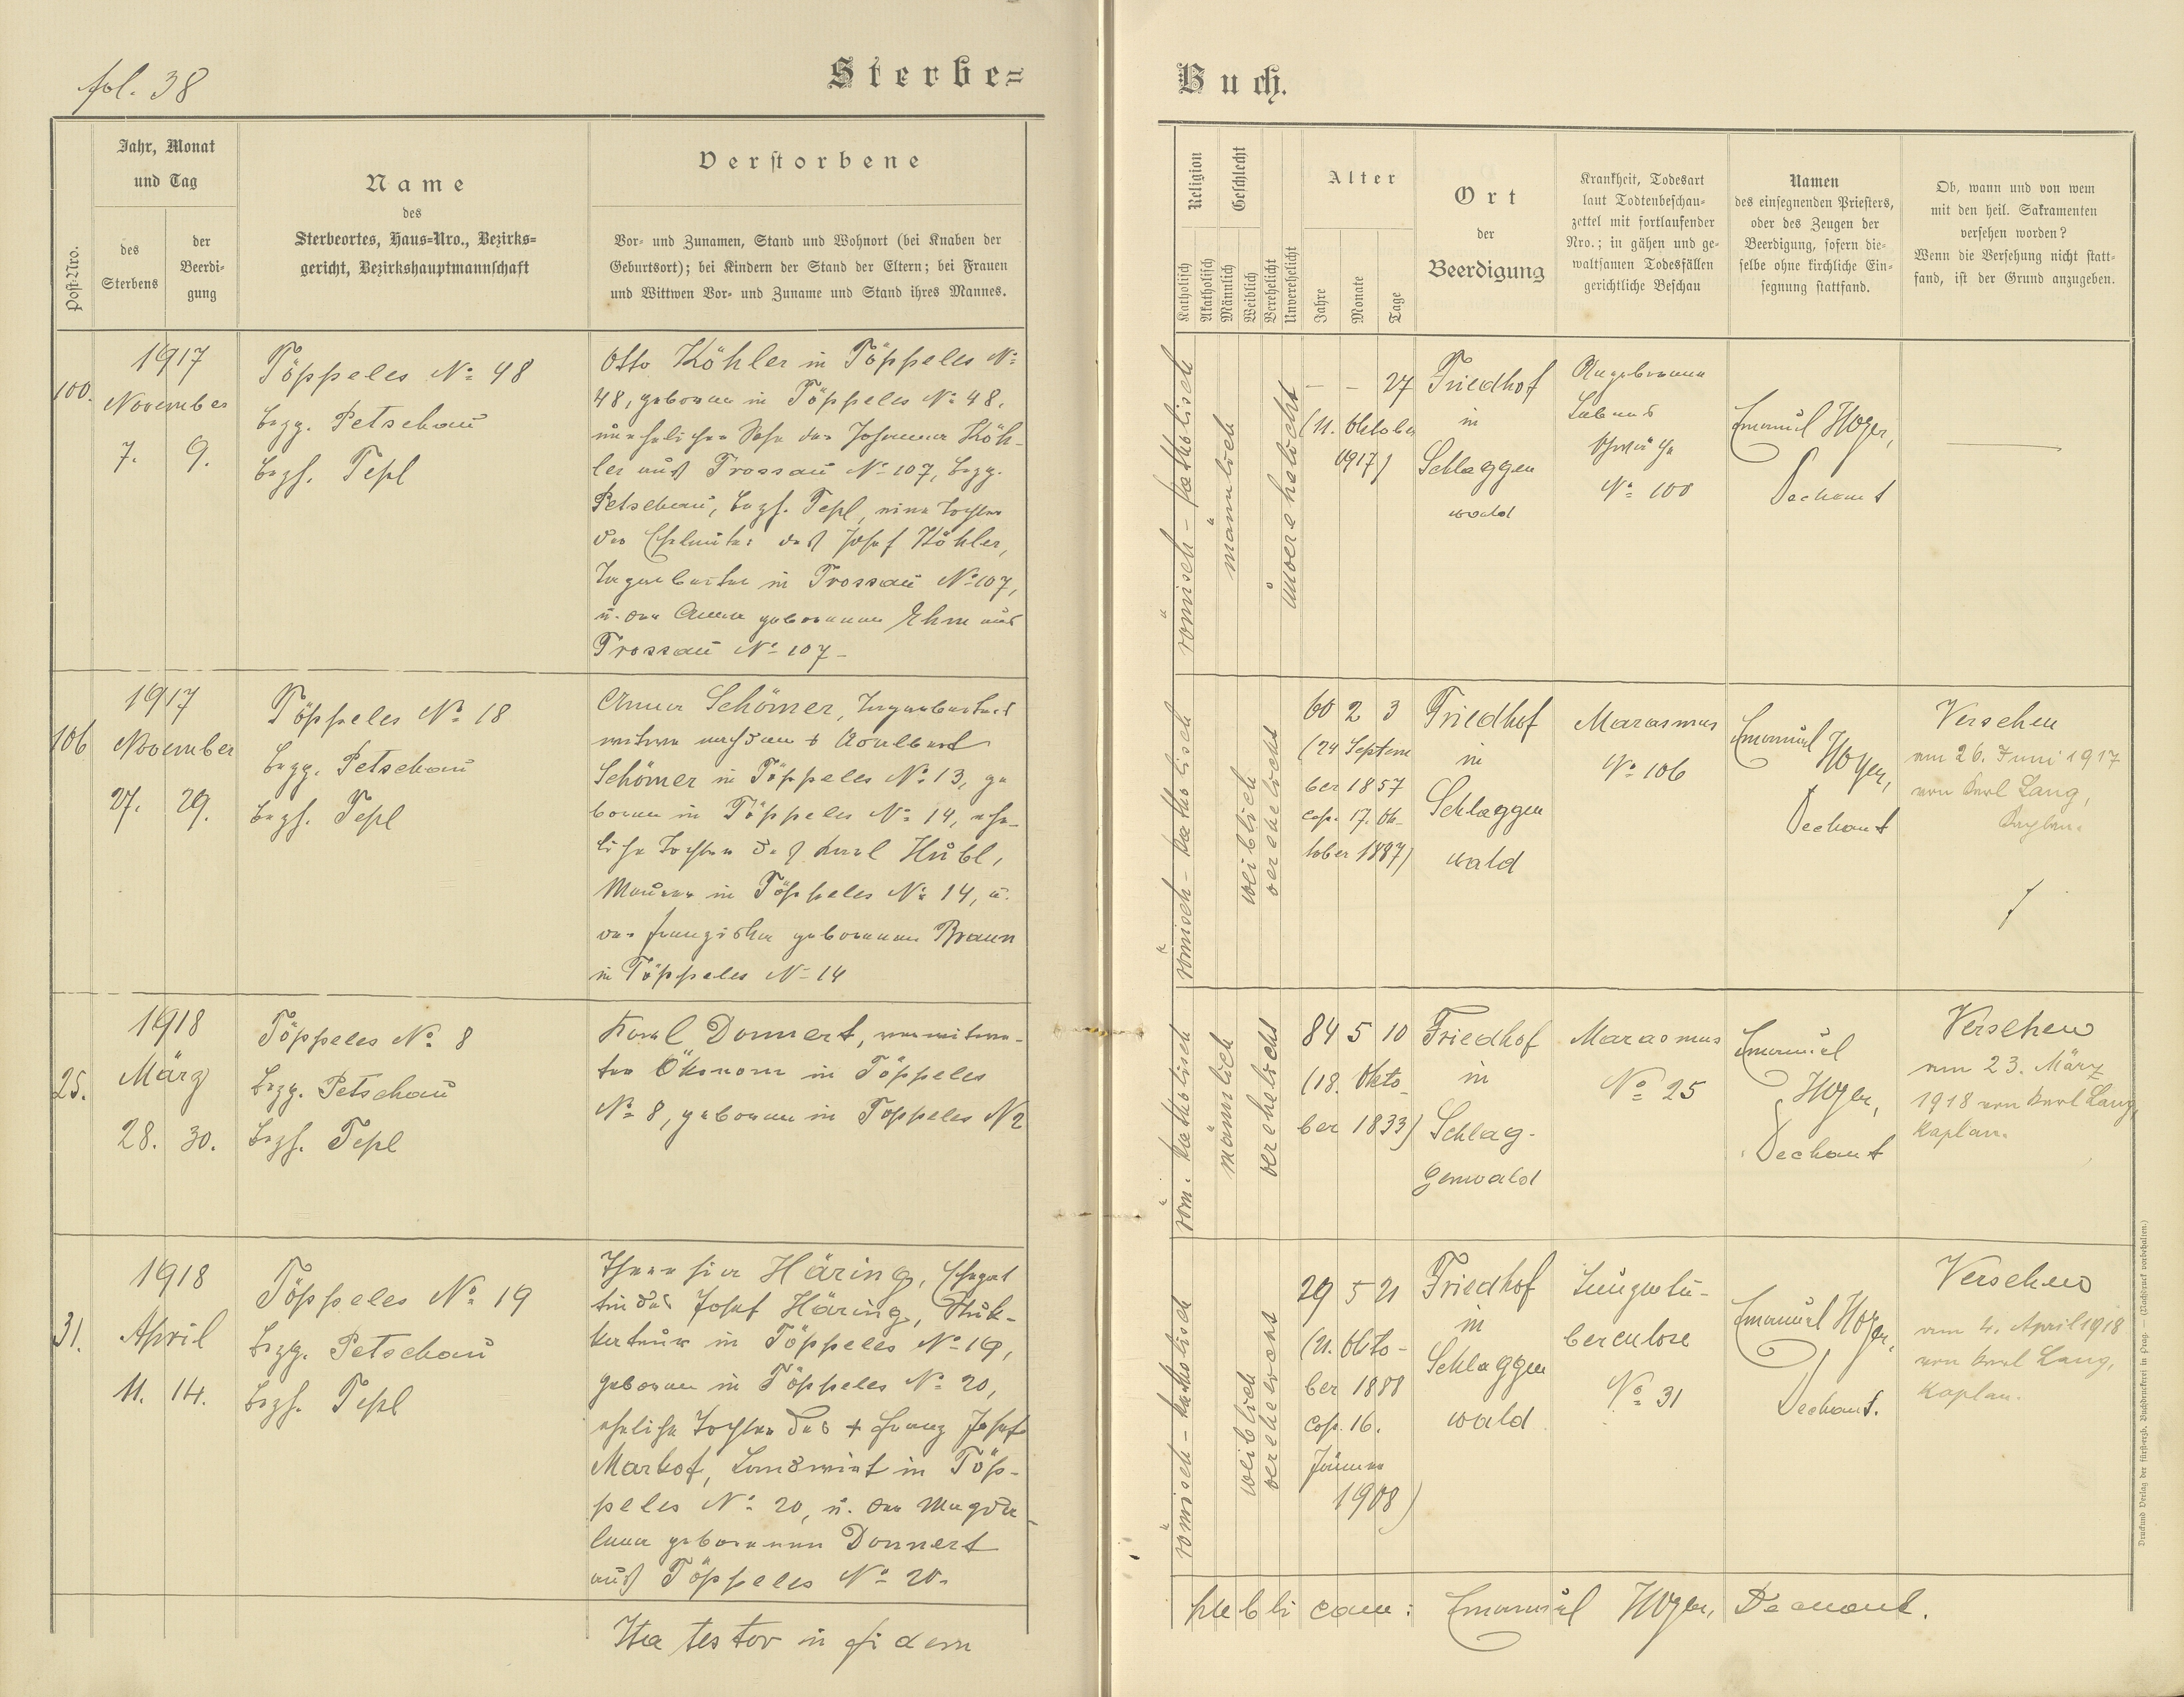 fol. 38
Sterbe=
Post-Nro.
Jahr, Monat
und Tag
des
Sterbens
der
Beerdi-
gung
Name
des
Sterbeortes, Haus=Nro., Bezirks=
gericht, Bezirkshauptmannschaft
Verstorbene
Vor- und Zunamen, Stand und Wohnort (bei Knaben der
Geburtsort); bei Kindern der Stand der Eltern; bei Frauen
und Wittwen Vor- und Zuname und Stand ihres Mannes.
100.
1917
November
7. 9.
Töppeles No 48
Bezg. Petschau
Bezh. Tepl
Otto Köhler in Töppeles No
48, geboren in Töppeles No 48,
unehelicher Sohn der Johanna Köh-
ler aus Trossau No 107, Bezg.
Petschau, Bezh. Tepl, eine Tochter
der Eheleute: des Josef Köhler,
Tagarbeiter in Trossau No 107,
u. der Anna geborenen Ehm aus
Trossau No 107
106
1917
November
27. 29.
Töppeles No 18
Bezg. Petschau
Bezh. Tepl
Anna Schömer, Tagarbeiters
witwe nach dem † Adalbert
Schömer in Töppeles No 13, ge
boren in Töppeles No 14, ehe-
liche Tochter des Karl Hübl,
Maurer in Töppeles No 14, u.
der Franziska geborenen Braun
in Töppeles No 14
25.
1918
März
28. 30.
Töppeles No 8
Bezg. Petschau
Bezh. Tepl
Karl Donnert, verwitwe-
ter Ökonom in Töppeles
No 8, geboren in Töppeles N 2
31.
1918
April
11. 14.
Töppeles No 19
Bezg. Petschau
Bezh. Tepl
Theresia Häring, Ehegat
tin des Josef Häring, Stuk-
kateur in Töppeles No 19,
geboren in Töppeles No 20,
eheliche Tochter des † Franz Josef
Markof, Landwirt in Töp-
peles No 20, u. der Magda-
lena geborenen Donnert
aus Töppeles No 20.
Ita testor in fidem
Buch.
Religion
Katholisch
Akatholisch
Geschlecht
Männlich
Weiblich
Verehelicht
Unverehelicht
Alter
Jahre
Monate
Tage
Ort
der
Beerdigung
Krankheit, Todesart
laut Todtenbeschau-
zettel mit fortlaufender
Nro.; in gähen und ge-
waltsamen Todesfällen
gerichtliche Beschau
Namen
des einsegnenden Priesters,
oder des Zeugen der
Beerdigung, sofern die-
selbe ohne kirchliche Ein-
segnung stattfand.
Ob, wann und von wem
mit den heil. Sakramenten
versehen worden?
Wenn die Versehung nicht statt-
fand, ist der Grund anzugeben.
römisch - katholisch
männlich
unverehelicht
- - 27
(11. Oktober
1917)
Friedhof
in
Schlaggen
wald
Angeborene
Lebens
schwäche
No 100
Emanuel Hoyer,
Dechant
römisch - katholisch
weiblich
verehelicht
60 2 3
(24 Septem
ber 1857
cop. 17. Ok-
tober 1887)
Friedhof
in
Schlaggen
wald
Marasmus
No 106
Emanuel
Hoyer,
Dechant
Versehen
am 26. Juni 1917
von Karl Lang,
Kaplan.
röm. katholisch
männlich
verehelicht
84 5 10
(18. Okto-
ber 1833)
Friedhof
in
Schlag-
genwald
Marasmus
No 25
Emanuel
Hoyer,
Dechant
Versehen
am 23. März
1918 von Karl Lang,
Kaplan.
römisch - katholisch
weiblich
verehelicht
29 5 21
(21. Okto-
ber 1888
cop. 16.
Jänner
1908)
Friedhof
in
Schlaggen
wald
Lungentu-
berculose
No 31
Emanuel Hoyer,
Dechant.
Versehen
am 4. April 1918
von Karl Lang,
Kaplan.
publicam: Emanuel Hoyer, Dechant.
Druck und Verlag der fürsterzb. Buchdruckerei in Prag. — (Nachdruck vorbehalten.)